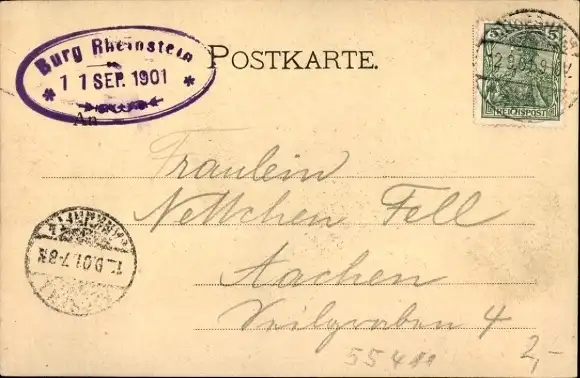 Burg Rheinstein
* 11 SEP. 1901 *
POSTKARTE.
5 5
REICHSPOST
An
Fräulein
Nettchen Fell
Aachen
Veilgraben 4
55411
2,-